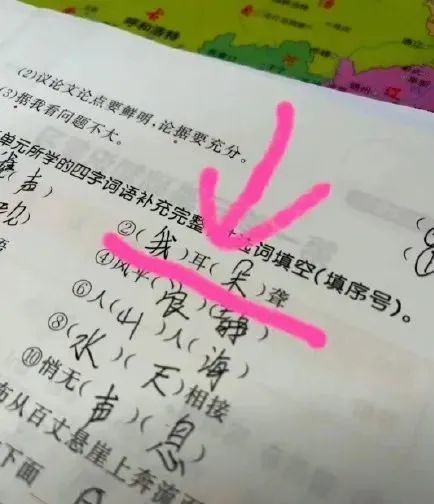 呼和浩特
(2)议论文论点要鲜明，论据要充分。
(3)据我看问题不大。
单元所学的四字词语补充完整 词填空(填序号)。
声)
②(我)耳(朵)聋
④风平(浪)(静)
语
⑥人(山)人(海)
⑧(水)(天)相接
⑩悄无(声)(息)
布从百丈悬崖上奔流而
下面